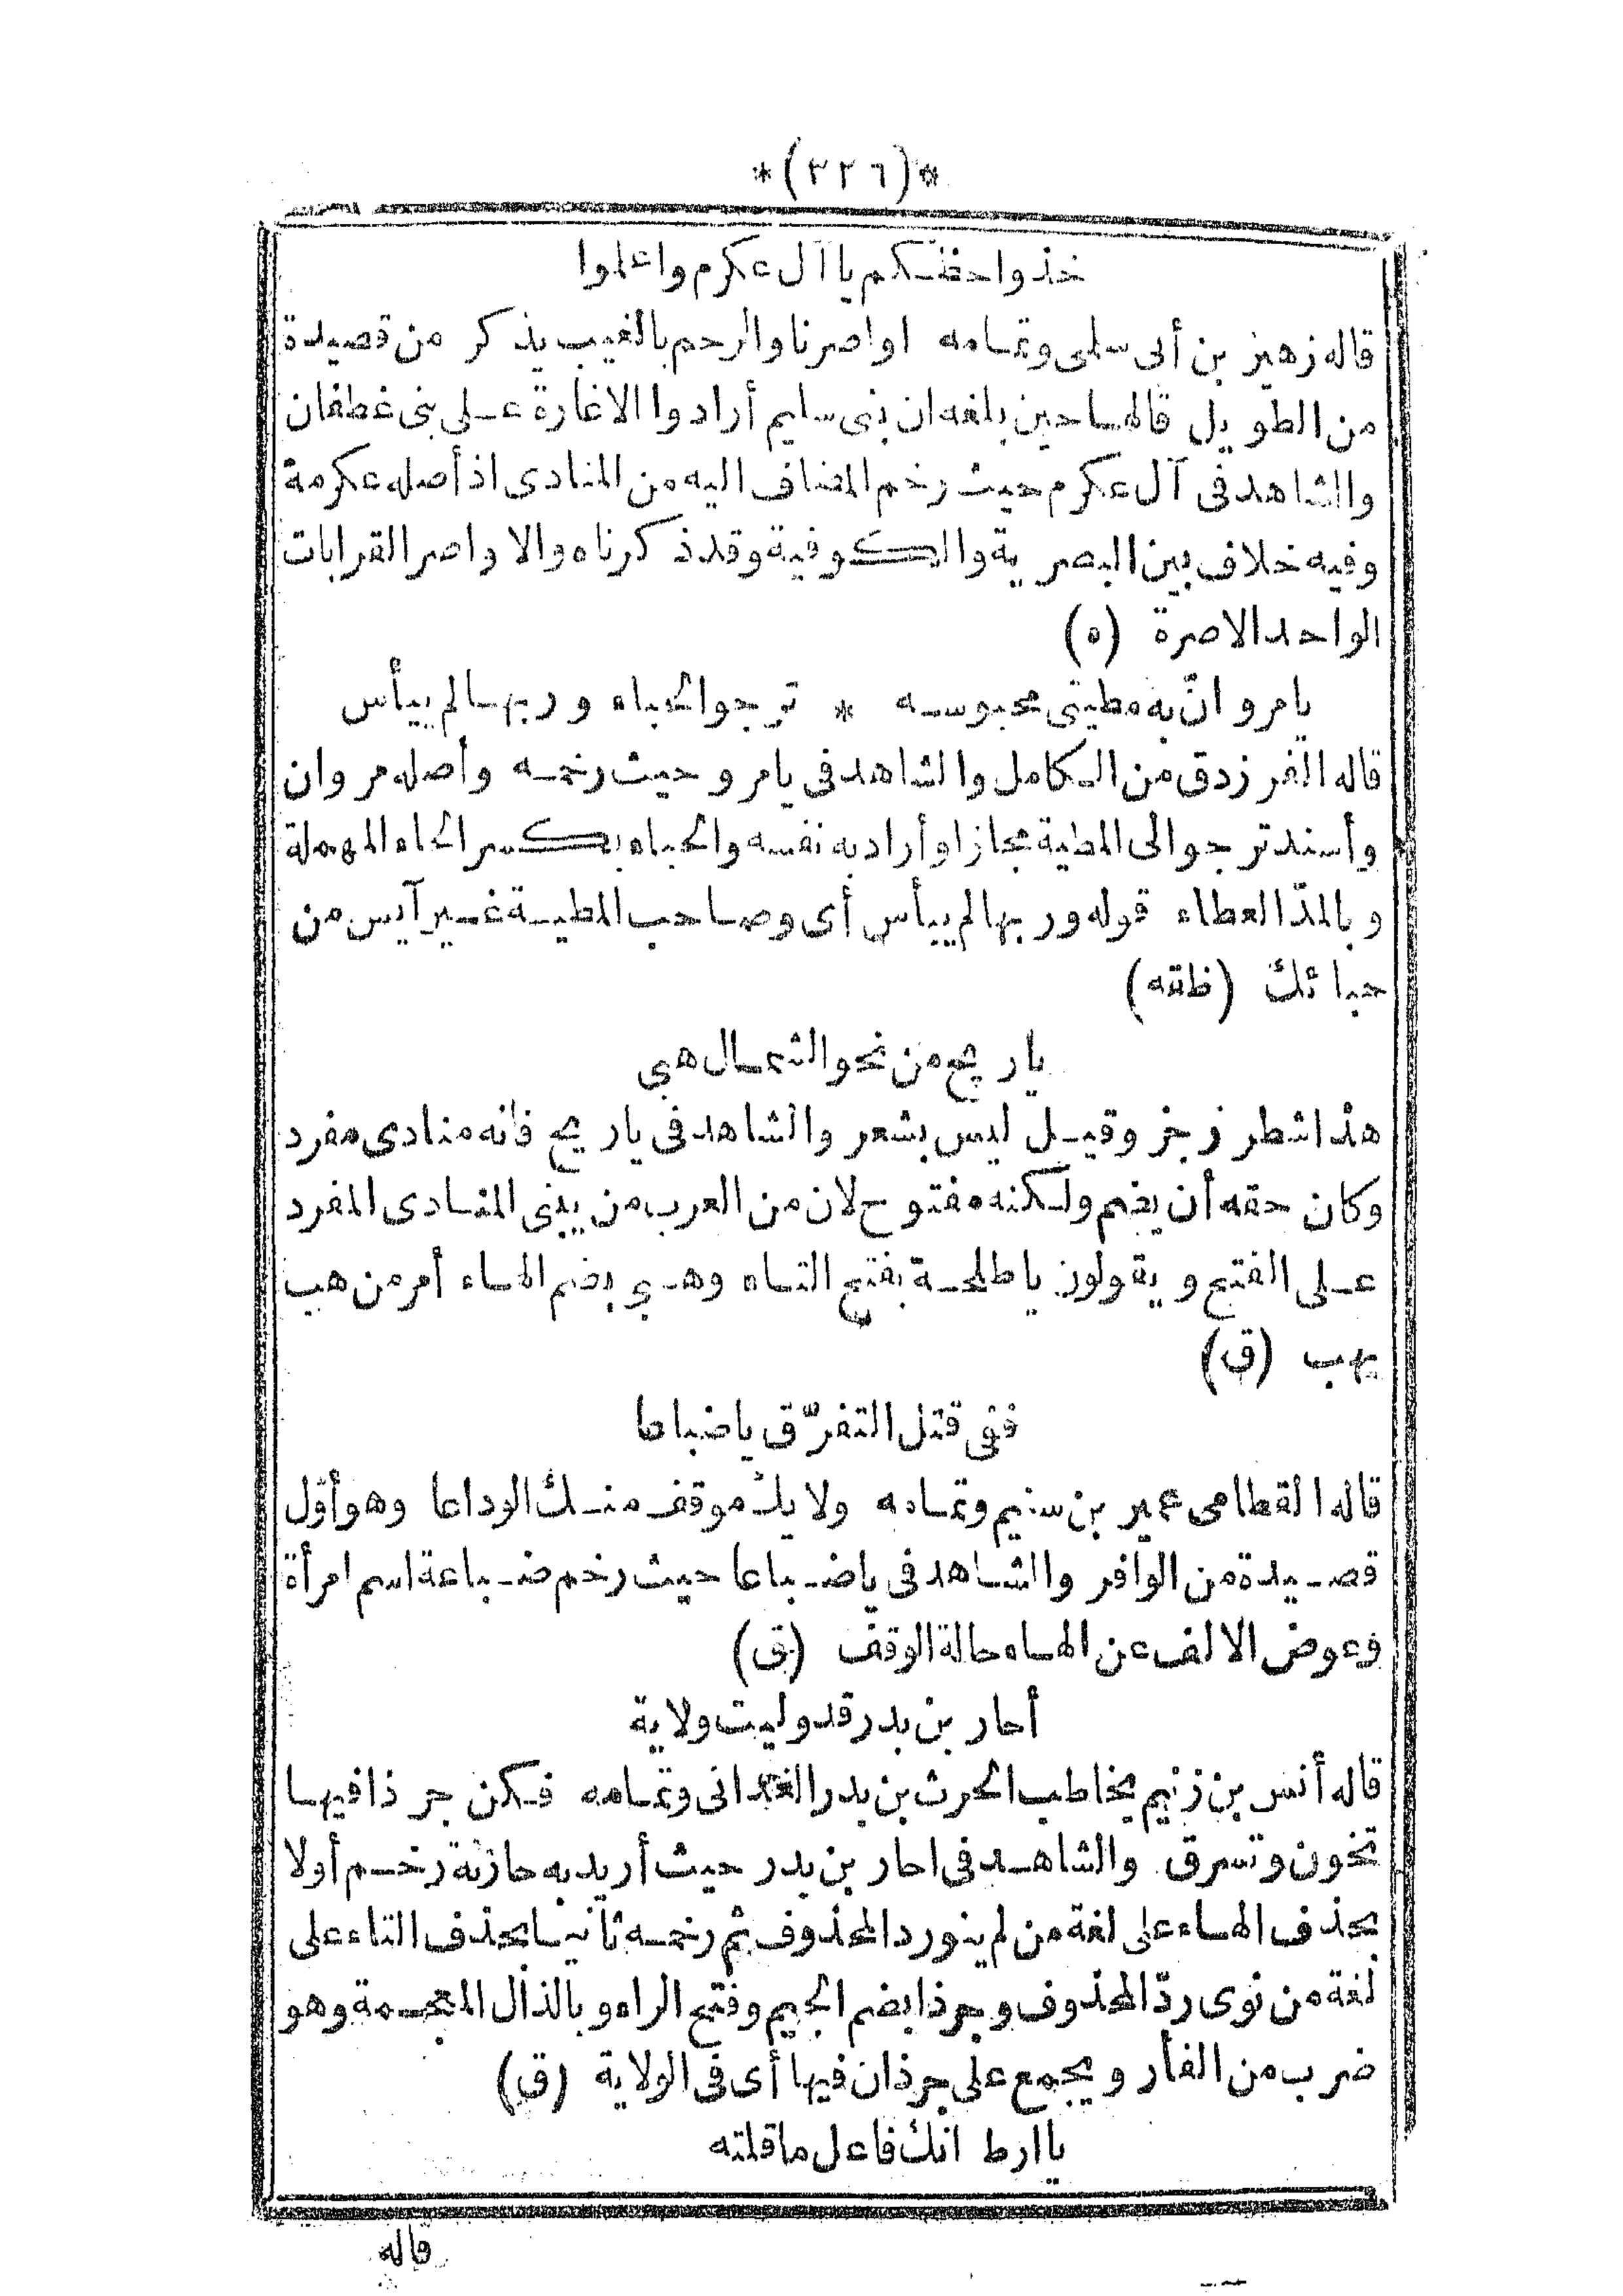 *(٣٢٦)*
خذوا حظكم يا آل عكرم واعلموا
قاله زهير بن أبى سلمى وتمامه اواصرنا والرحم بالغيب يذكر من قصيدة
من الطويل قالها حين بلغه ان بنى سليم أرادوا الاغارة على بنى غطفان
والشاهد فى آل عكرم حيث رخم المضاف اليه من المنادى اذ أصله عكرمة
وفيه خلاف بين البصرية والكوفية وقد ذكرناه والاواصر القرابات
الواحد الاصرة (ه)
يا مرو انّ به مطيتى محبوسه * ترجو الحباء وربها لم ييأس
قاله الفرزدق من الكامل والشاهد فى يا مرو حيث رخمه وأصله مروان
وأسند ترجو الى المطية مجازا وأراد به نفسه والحباء بكسر الحاء المهملة
وبالمدّ العطاء قوله وربها لم ييأس أى وصاحب المطية غير آيس من
حبائك (ظقه)
يا ريح من نحو الشمال هبى
هذا شطر رجز وقيل ليس بشعر والشاهد فى يا ريح فانه منادى مفرد
وكان حقه أن يضم ولكنه مفتوح لان من العرب من يبنى المنادى المفرد
على الفتح ويقولون يا طلحة بفتح التاء وهبى بضم الهاء أمر من هب
يهب (ق)
قفى قبل التفرّق يا ضباعا
قاله القطامى عمير بن سنيم وتمامه ولا يك موقف منك الوداعا وهو أوّل
قصيدة من الوافر والشاهد فى يا ضباعا حيث رخم ضباعة اسم امرأة
وعوض الالف عن الهاء حالة الوقف (ق)
أحار بن بدر قد وليت ولاية
قاله أنس بن زنيم يخاطب الحرث بن بدر الغدانى وتمامه فكن جرذا فيها
تخون وتسرق والشاهد فى احار بن بدر حيث أريد به حارثة رخم أولا
بحذف الهاء على لغة من لم ينو رد المحذوف ثم رخمه ثانيا بحذف التاء على
لغة من نوى ردّ المحذوف وجرذا بضم الجيم وفتح الراء وبالذال المعجمة وهو
ضرب من الفأر ويجمع على جرذان فيها أى فى الولاية (ق)
يا ارط انك فاعل ما قلته
قاله